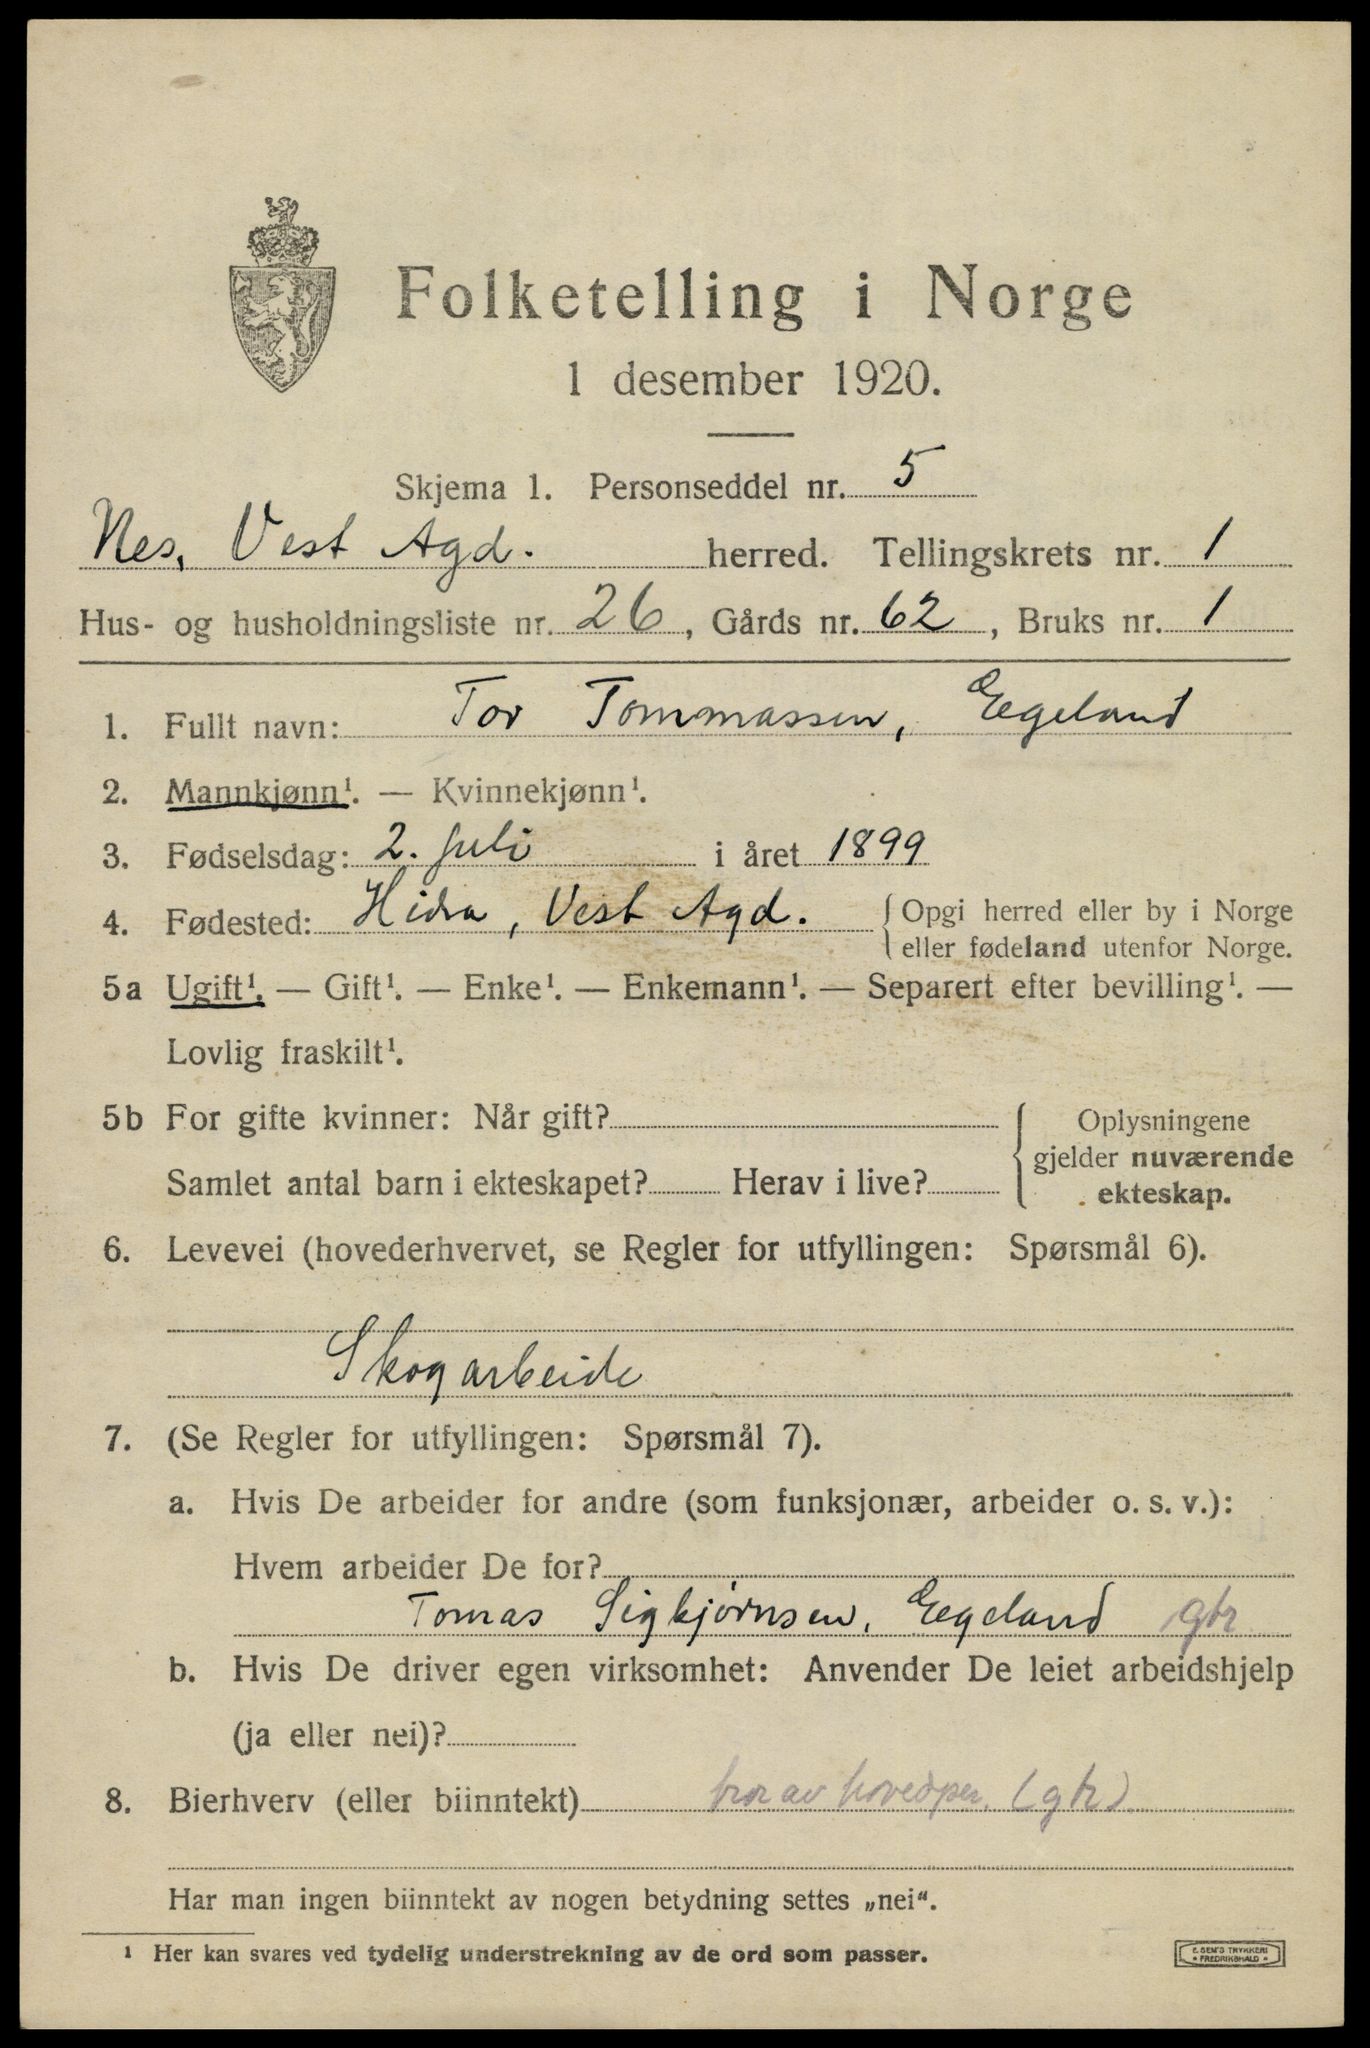 Folketelling i Norge
1 desember 1920.
Skjema 1. Personseddel nr. 5
Nes, Vest Agd. herred. Tellingskrets nr. 1
Hus- og husholdningsliste nr. 26, Gårds nr. 62, Bruks nr. 1
1. Fullt navn: Tor Tommassen, Eegeland
2. Mannkjønn¹. — Kvinnekjønn¹.
3. Fødselsdag: 2. juli i året 1899
4. Fødested: Hidra, Vest Agd. { Opgi herred eller by i Norge
eller fødeland utenfor Norge.
5a Ugift¹. — Gift¹. — Enke¹. — Enkemann¹. — Separert efter bevilling¹. —
Lovlig fraskilt¹.
5b For gifte kvinner: Når gift? { Oplysningene
gjelder nuværende
Samlet antal barn i ekteskapet? Herav i live? ekteskap.
6. Levevei (hovederhvervet, se Regler for utfyllingen: Spørsmål 6).
Skogarbeide
7. (Se Regler for utfyllingen: Spørsmål 7).
a. Hvis De arbeider for andre (som funksjonær, arbeider o. s. v.):
Hvem arbeider De for?
Tomas Sigbjørnsen, Eegeland gbr
b. Hvis De driver egen virksomhet: Anvender De leiet arbeidshjelp
(ja eller nei)?
8. Bierhverv (eller biinntekt) av hovedper. (gbr)
Har man ingen biinntekt av nogen betydning settes „nei“.
¹ Her kan svares ved tydelig understrekning av de ord som passer.
E. SEM'S TRYKKERI
• FREDRIKSHALD •